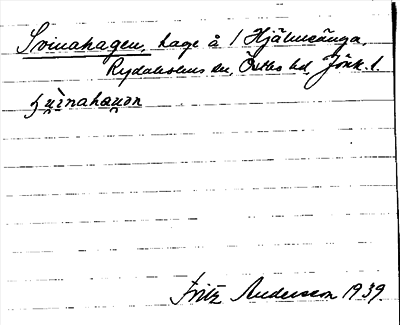 Svinahagen, hage å 1 Hjälmsänga,
Rydaholms sn, Östbo hd, Jönk. l.
Fritz Andersson 1939.